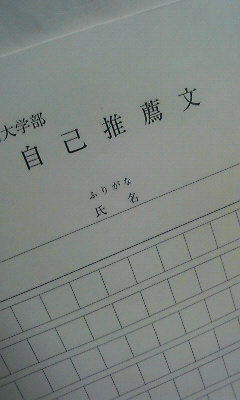 大学部
自己推薦文
ふりがな
氏名